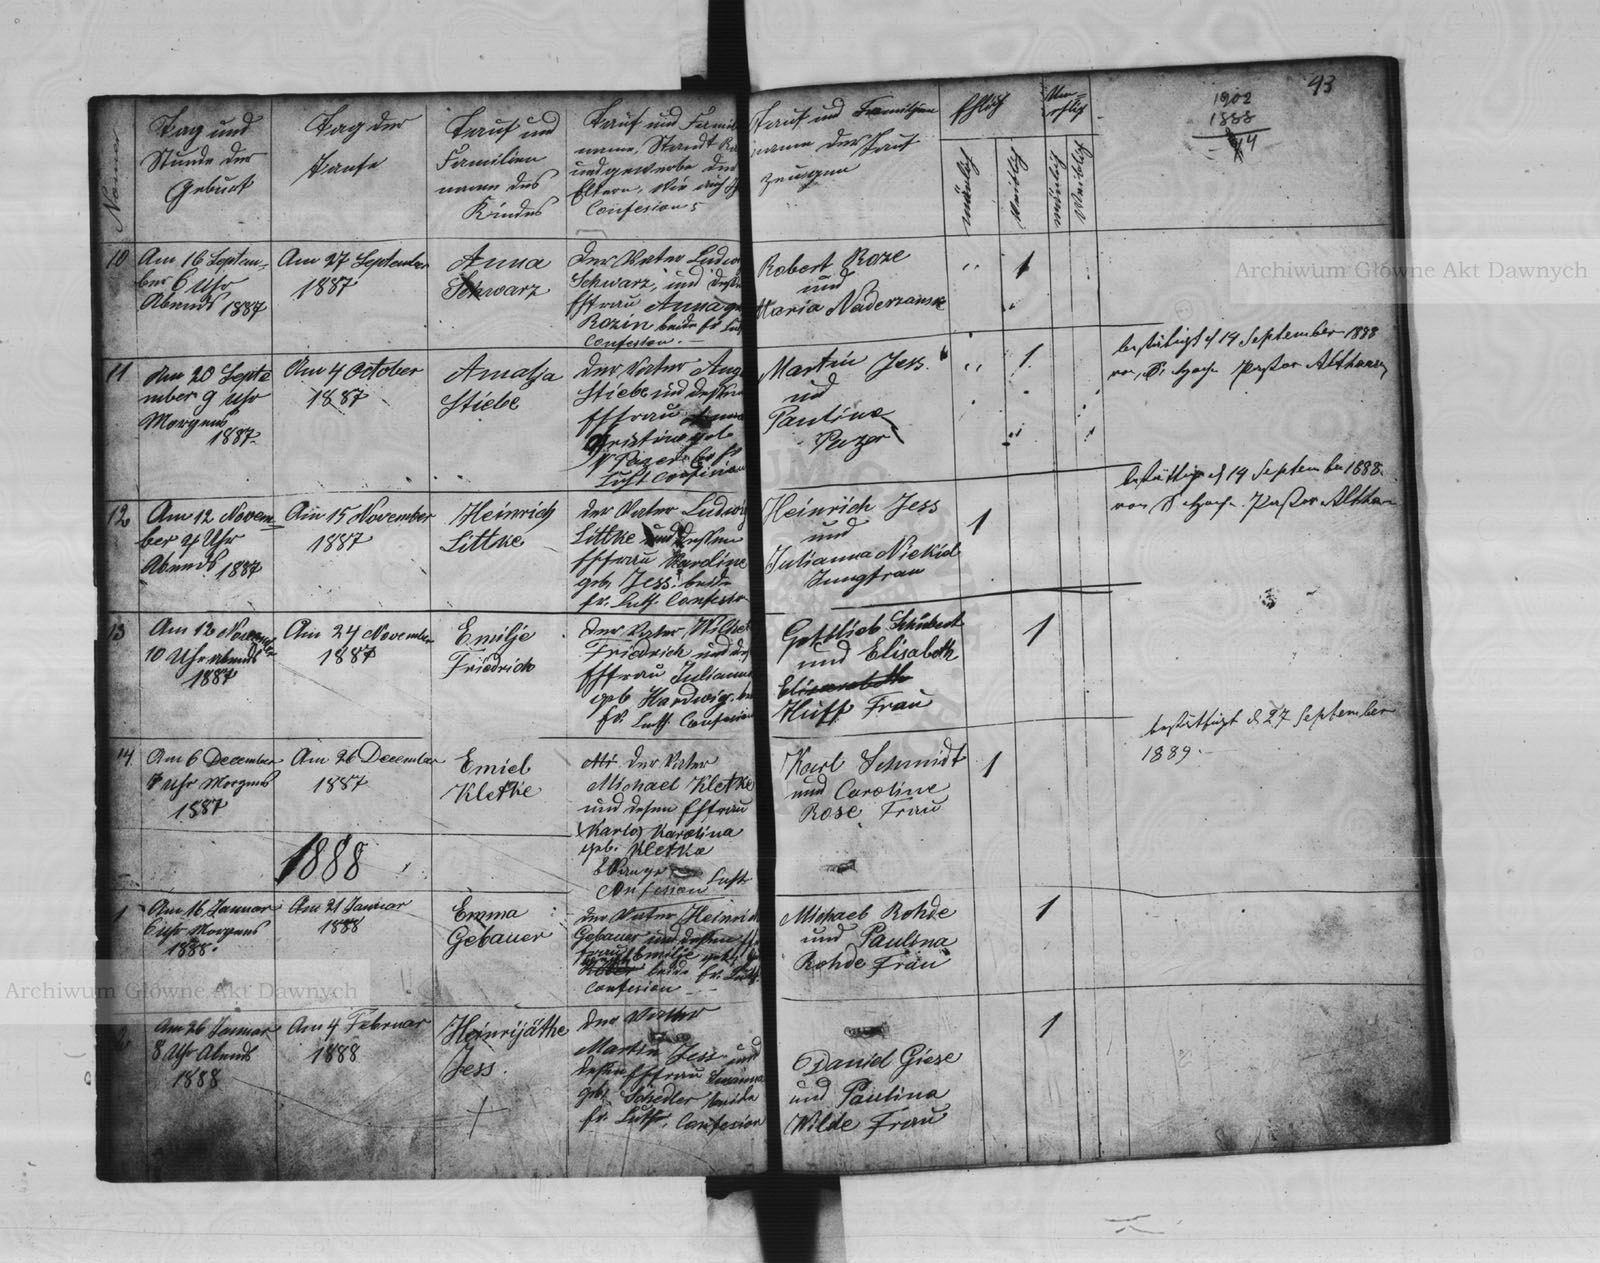 93
1902
1888
14
Tag und
Stunde der
Geburt
Tag der
Taufe
Tauf und
Familien
name des
Kindes
Tauf und Famili
name, Standt
und gewerbe der
Eltern, wie auch
Confesion
Tauf und Familijen
name der Tauf
zeugen
Ehlich
männlich
Weiblich
10
Am 16 Septem-
ber 6 Uhr
Abends 1887
Am 27 September
1887
Anna
Schwarz
der Vater Ludwi
Schwarz, und deßen
Ehfrau Anna ge
Rozin beide Ev Lut
Confesion.
Robert Roze
und
Maria Naderzanske
1
11
Am 20 Septe
mber 9 Uhr
Morgens
1887.
Am 4 October
1887
Amalja
Stiebe
der Vater Aug
Stiebe und deßen
Ehfrau
Cristine geb
Pazer
Luth Confesion
Martin Jess.
und
Paulina
Pazer
1.
bestätigt d 19 September 1888
von Pastor
12
Am 12 Novem-
ber 9 Uhr
Abends 1887
Am 15 November
1887
Heinrich
Littke
der Vater Ludwig
Littke und deßen
Ehfrau Karoline
geb. Jess. beide
Ev. Luth. Confesion
Heinrich Jess
und
Julianna Nickiel
Jungfrau
1
bestättigt d 19 September 1888.
von Pastor
13
Am 13 November
10 Uhr abends
1887
Am 24 November
1887
Emilje
Friedrich
der Vater, Wilhel
Friedrich und deß
Ehfrau Julianna
geb Hardwig. be
Ev. Luth. Confesion
Gottlieb Schubert
und Elisabeth
Huff Frau
1
14
Am 6 December
Uhr Morgens
1887
Am 26 December
1887
Emiel
Kletke
der Vater
Michael Kletke
und deßen Ehfrau
(Karlo) Karolina
geb. Kletka
Luth
Confesion
Karl Schmidt
und Caroline
Rose Frau
1
bestättigt d. 27 September
1889.
1888
1
Am 16 Januar
6 Uhr Morgens
1888.
Am 21 Januar
1888
Emma
Gebauer
der Vater Heinrich
Gebauer und deßen
frau Emilie geb.
beide Ev. Luth.
Confesion
Michael Rohde
und Paulina
Rohde Frau
1
2
Am 26 Januar
8 Uhr Abends
1888
Am 4 Februar
1888
Heinrijäthe
Jess.
der Vater
Martin Jess und
deßen Ehfrau Susanna
geb. Schedler beide
Ev. Luth. Confesion
Daniel Giese
und Paulina
Wilde Frau
1
Archiwum Główne Akt Dawnych
Archiwum Główne Akt Dawnych